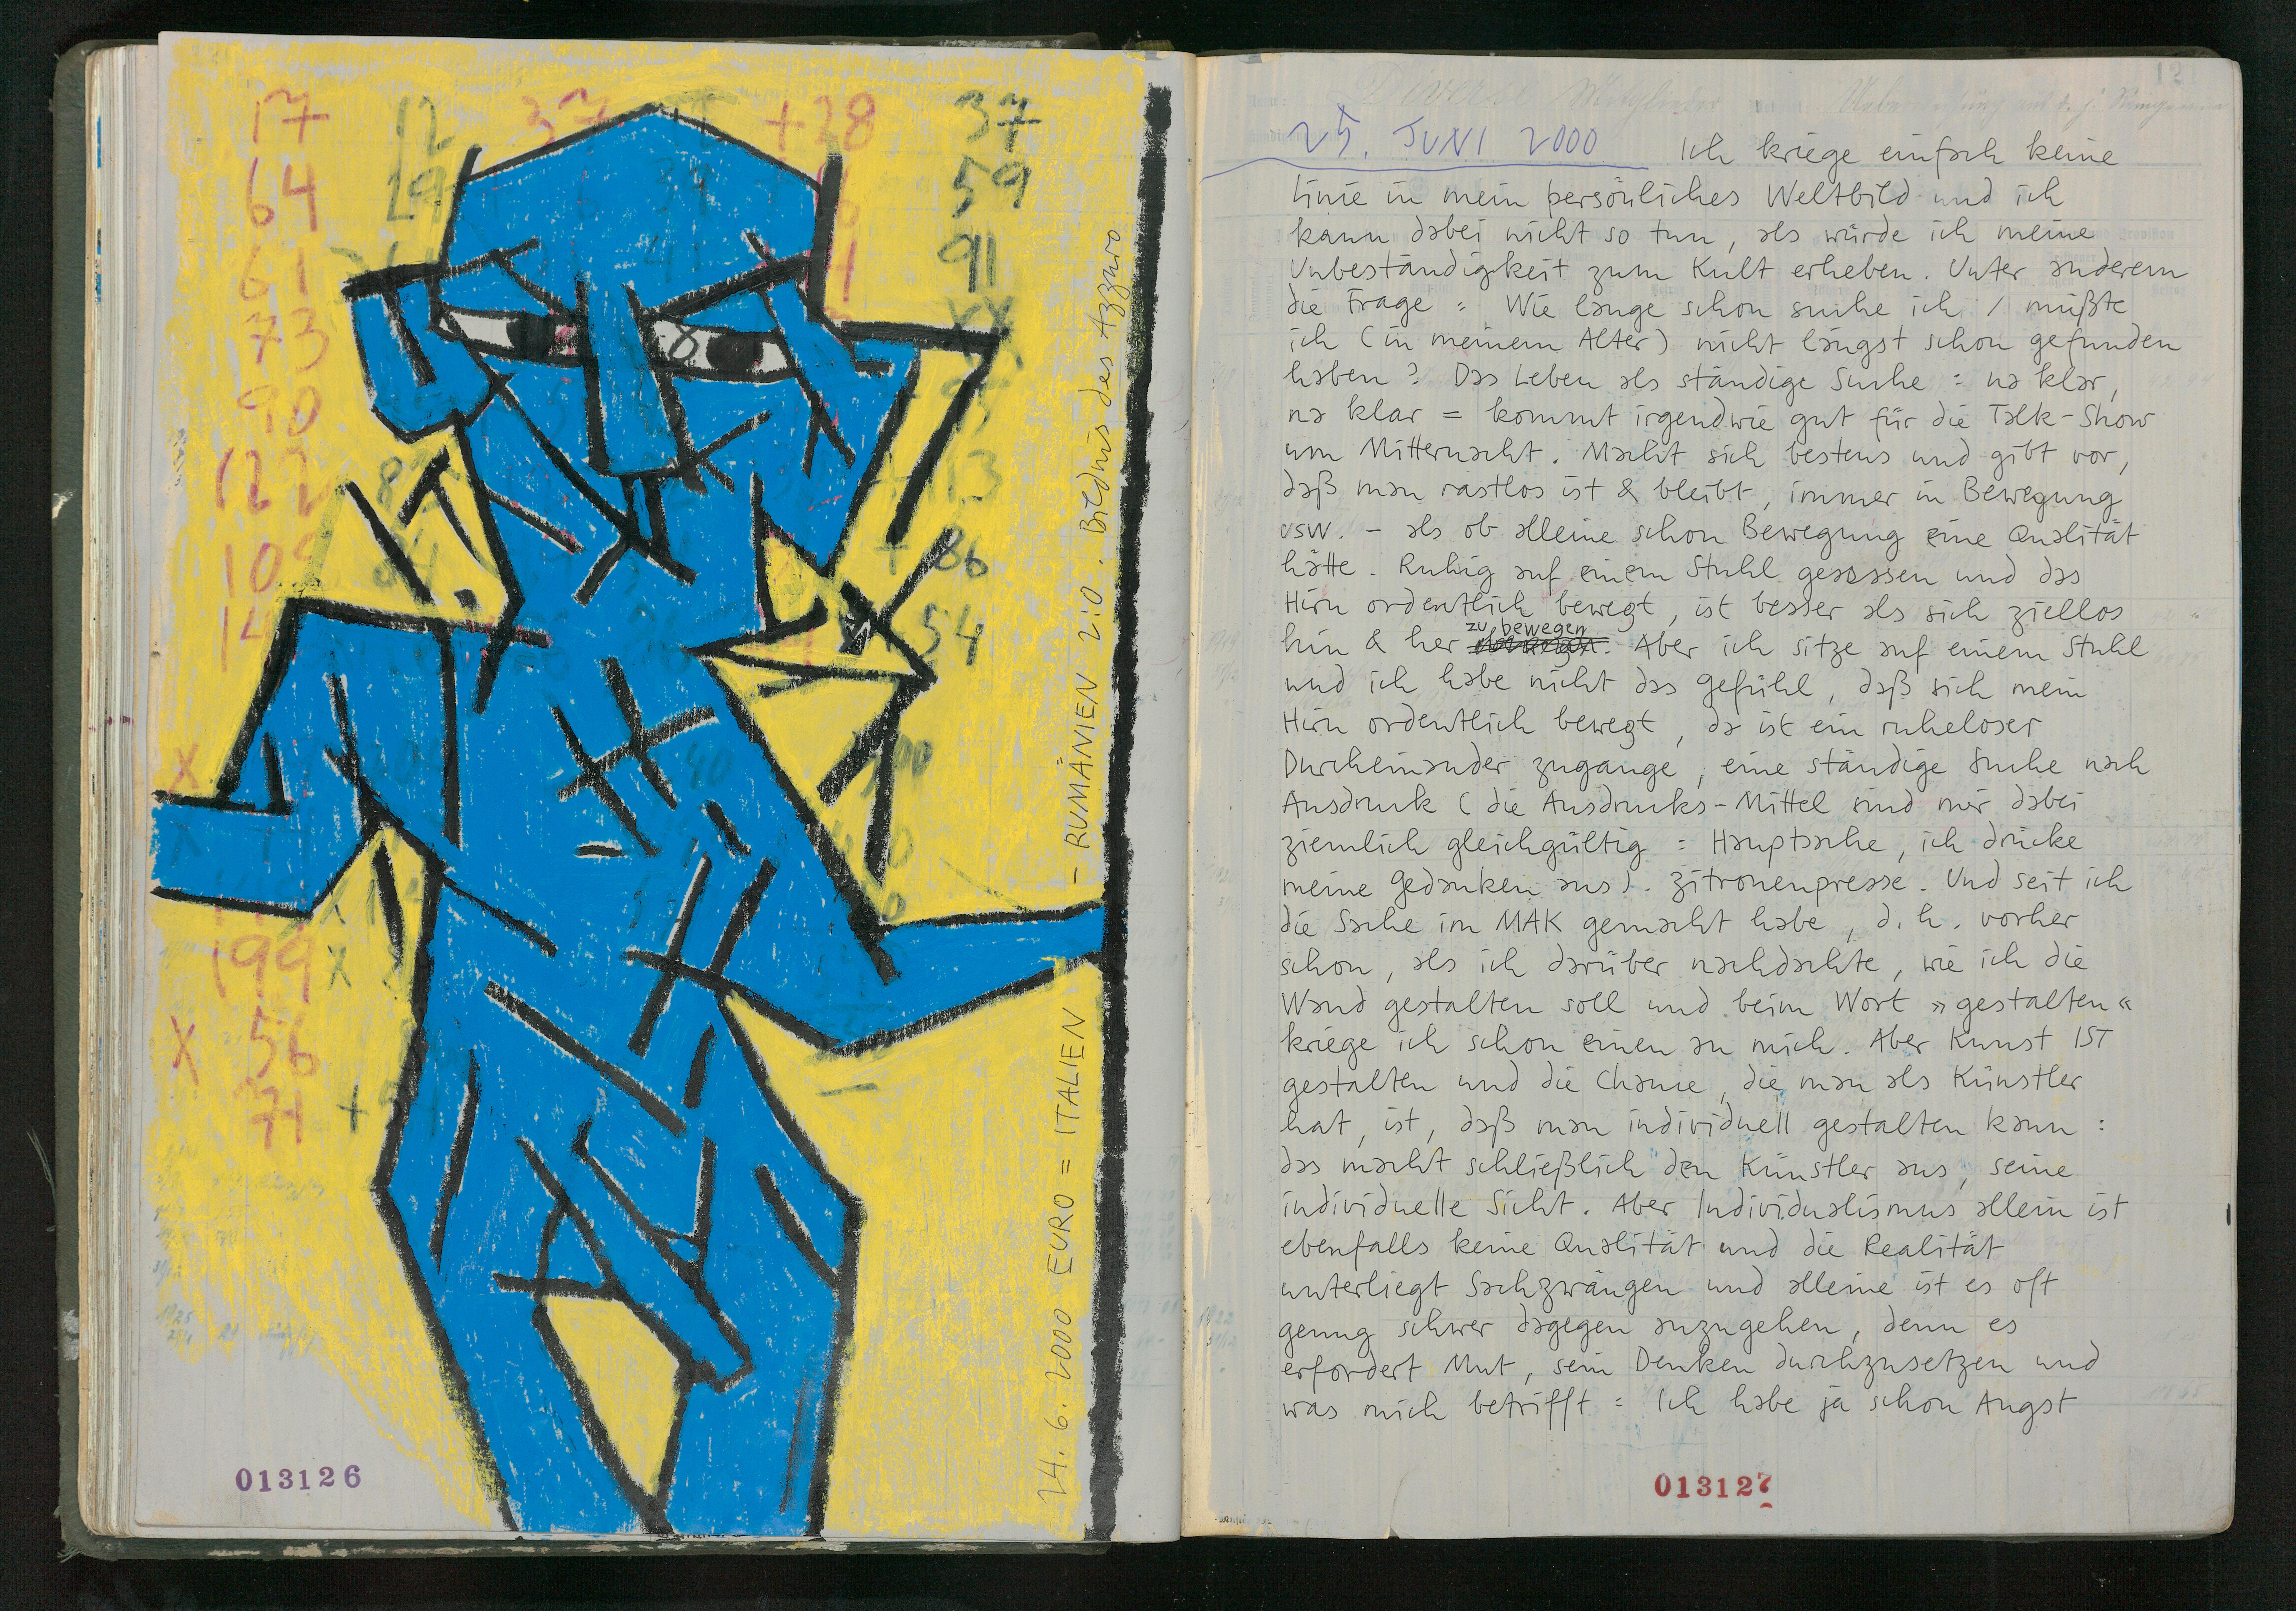 17 12 37 +28 37
64 19 59
61 91
73
90
122
109 + 86
54
40
199 x
x 56
71 +
24. 6. 2000 EURO = ITALIEN – RUMÄNIEN 2:0. Bildnis des Azzuro
013126
25. JUNI 2000 Ich kriege einfach keine
Linie in mein persönliches Weltbild und ich
kann dabei nicht so tun, als würde ich meine
Unbeständigkeit zum Kult erheben. Unter anderem
die Frage = Wie lange schon suche ich / müßte
ich (in meinem Alter) nicht längst schon gefunden
haben? Das Leben als ständige Suche = na klar,
na klar = kommt irgendwie gut für die Talk-Show
um Mitternacht. Macht sich bestens und gibt vor,
daß man rastlos ist & bleibt, immer in Bewegung
usw. – als ob alleine schon Bewegung eine Qualität
hätte. Ruhig auf einem Stuhl gesessen und das
Hirn ordentlich bewegt, ist besser als sich ziellos
hin & her zu bewegen. Aber ich sitze auf einem Stuhl
und ich habe nicht das Gefühl, daß sich mein
Hirn ordentlich bewegt, da ist ein ruheloser
Durcheinander zugange, eine ständige Suche nach
Ausdruck (die Ausdrucks-Mittel sind mir dabei
ziemlich gleichgültig = Hauptsache, ich drücke
meine Gedanken aus). Zitronenpresse. Und seit ich
die Sache im MAK gemacht habe, d. h. vorher
schon, als ich darüber nachdachte, wie ich die
Wand gestalten soll und beim Wort »gestalten«
kriege ich schon einen an mich. Aber Kunst IST
gestalten und die Chance, die man als Künstler
hat, ist, daß man individuell gestalten kann :
das macht schließlich den Künstler aus, seine
individuelle Sicht. Aber Individualismus allein ist
ebenfalls keine Qualität und die Realität
unterliegt Sachzwängen und alleine ist es oft
genug schwer dagegen anzugehen, denn es
erfordert Mut, sein Denken durchzusetzen und
was mich betrifft = Ich habe ja schon Angst
013127